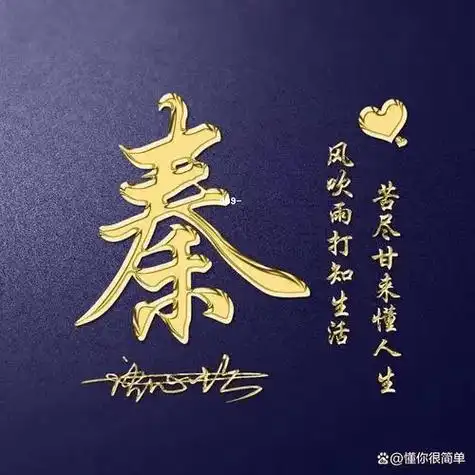 秦
苦尽甘来懂人生
风吹雨打知生活
@懂你很简单